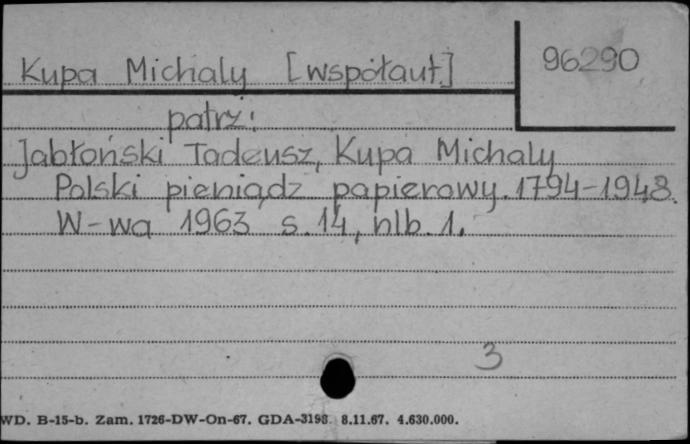 Kupa Michaly [współaut.] 96290
patrz:
Jabłoński Tadeusz, Kupa Michaly
Polski pieniądz papierowy. 1794-1948.
W-wa 1963 s. 14, nlb. 1.
3
WD. B-15-b. Zam. 1726-DW-On-67. GDA-3198. 8.11.67. 4.630.000.